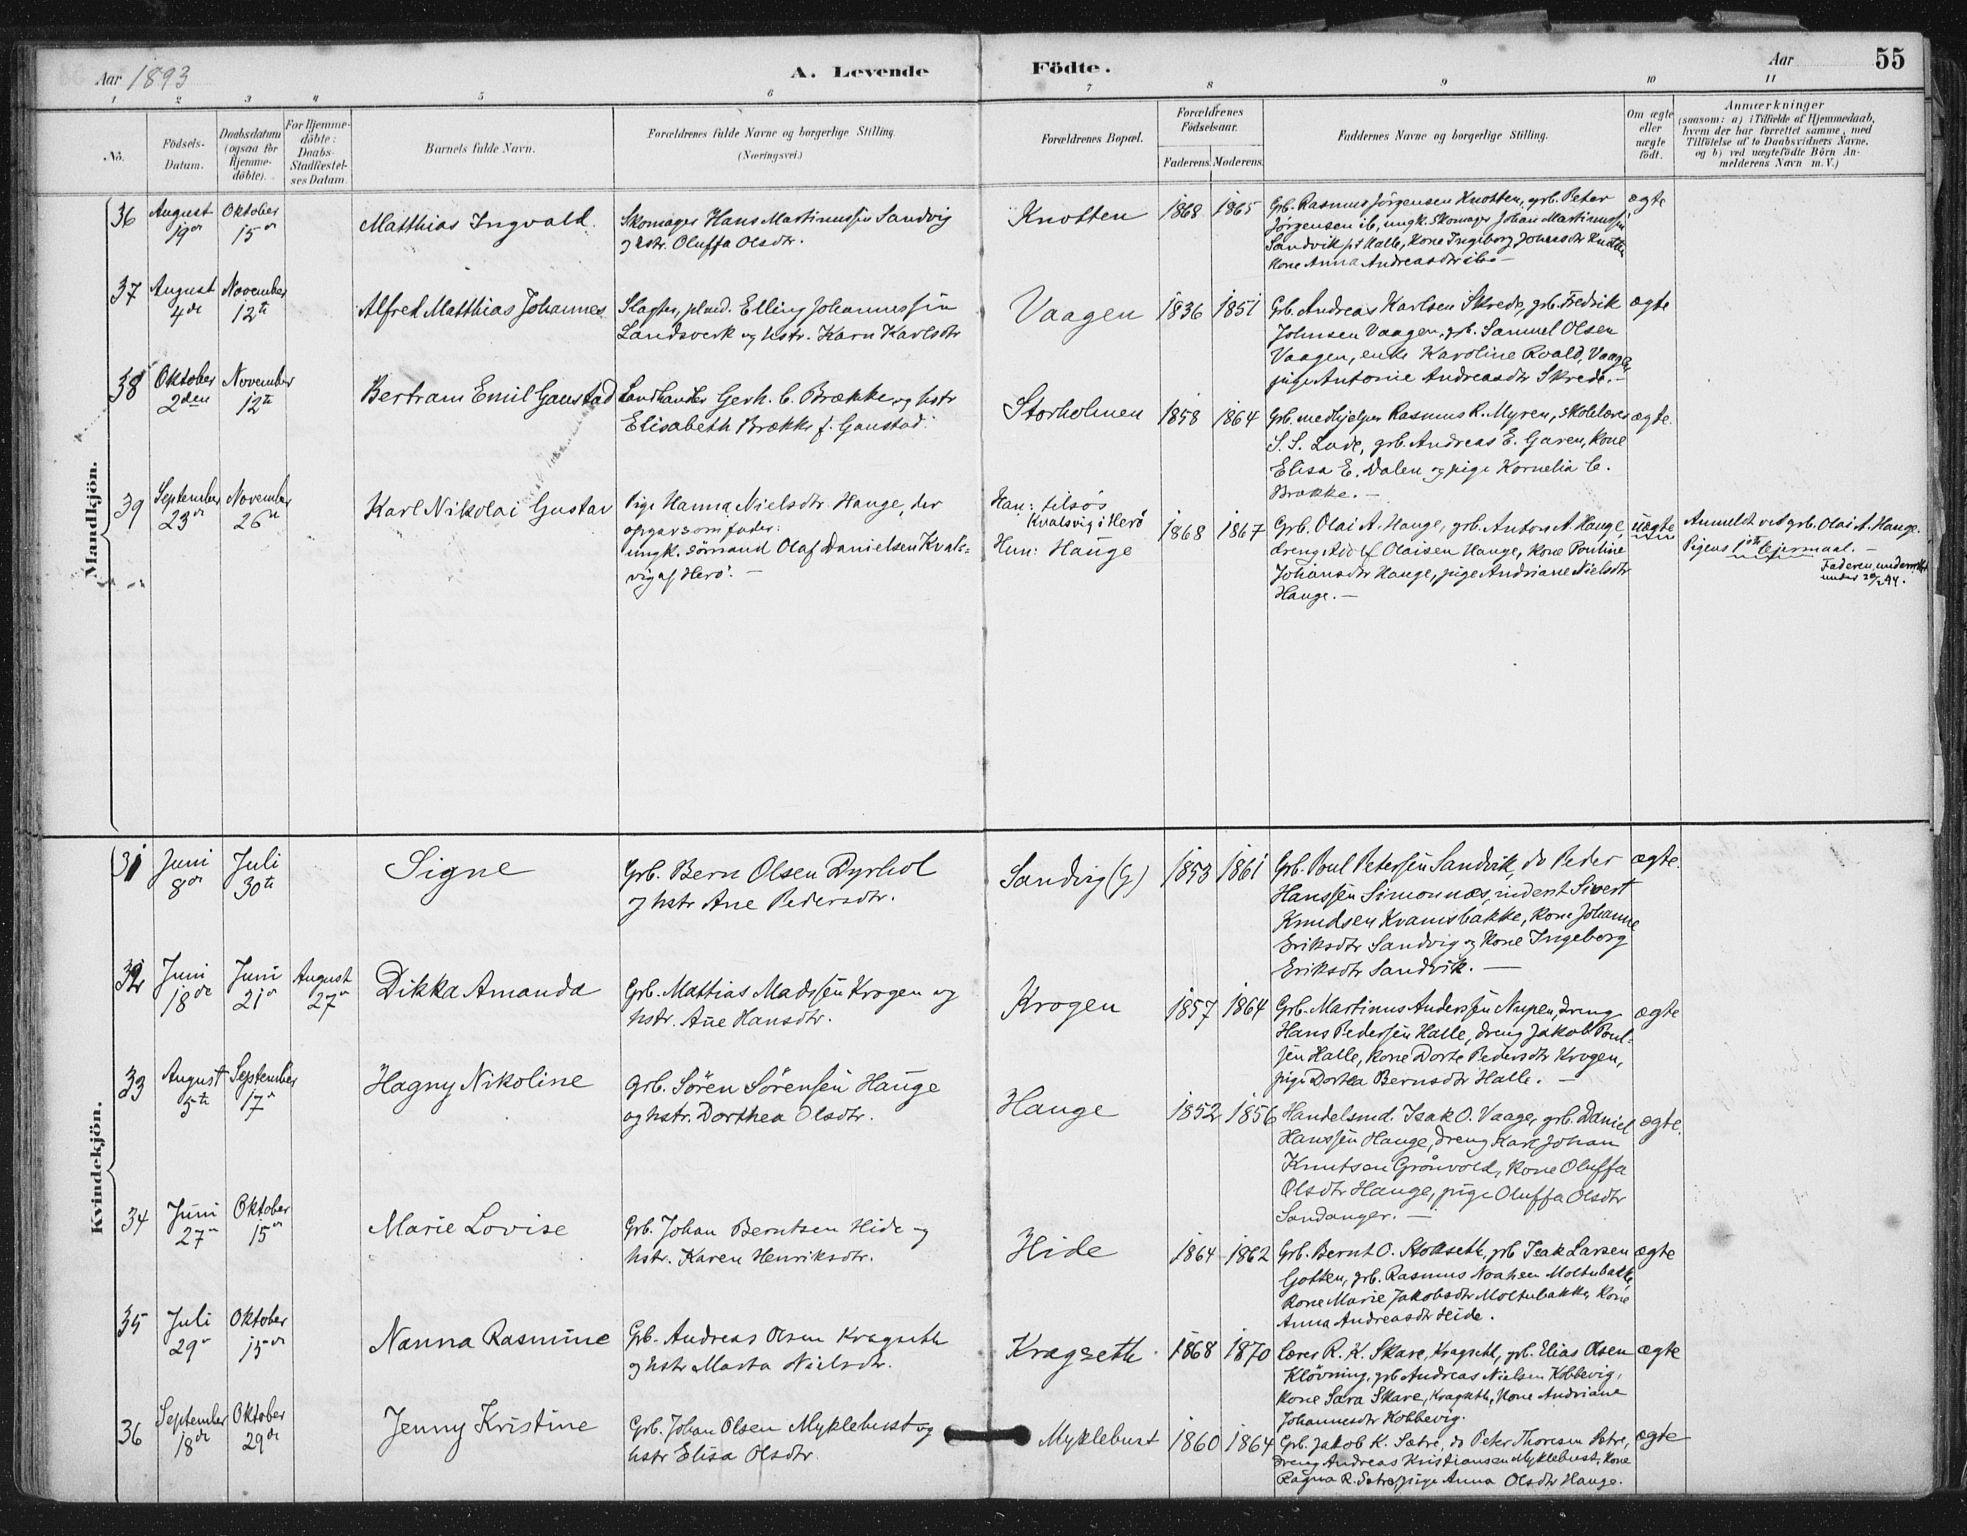 Aar 1893
A. Levende Födte.
Aar
55
1 2 3 4 5 6 7 8 9 10 11
No.
Födsels-
Datum.
Daabsdatum
(ogsaa for
Hjemme-
döbte).
For Hjemme-
döbte:
Daabs-
Stadfæstel-
ses Datum.
Barnets fulde Navn.
Forældrenes fulde Navne og borgerlige Stilling.
(Næringsvei.)
Forældrenes Bopæl.
Forældrenes
Födselsaar.
Faderens. Moderens.
Faddernes Navne og borgerlige Stilling.
Om ægte
eller
uægte
födt.
Anmærkninger
(saasom: a) i Tilfælde af Hjemmedaab,
hvem der har forrettet samme, med
Tilföielse af to Daabsvidners Navne.
og b) ved uægtefödte Börn An-
melderens Navn m. V.)
Mandkjön.
36
August
19de
Oktober
15de
Matthias Ingvald.
Skomager Hans Martinussen Sandvig
og hstr. Oluffa Olsdtr.
Knotten
1868 1865
Grb. Rasmus Jörgensen Knotten, grb. Peter
Jörgensen ib, ungk. Skomager Johan Martinussen
Sandvik pt Halle, Kone Ingeborg Johansdtr Knotten
Kone Anna Andreasdtr ib. —
ægte
37
August
4de
November
12te
Alfred Matthias Johannes
Slagter, Elling Johannessen
Landsverk og hstr. Karn Karlsdtr
Vaagen
1836 1851
Grb. Andreas Karlsen Skrede, grb. Fredrik
Johnsen Vaagen, grb. Samuel Olsen
Vaagen, enke Karoline Roald, Vaagen,
pige Antonie Andreasdtr Skrede. —
ægte
38
Oktober
2den
November
12te
Bertram Emil Gaustad
Landhandler Gerh. C. Brække og hstr
Elisabeth Brække f. Gaustad.
Storholmen
1858 1864
Grb. medhjelper Rasmus R. Myren, Skolelærer
S. S. Lade, grb. Andreas E. Garen, Kone
Elisa E. Dalen og pige Kornelia C.
Brække. —
ægte.
39
September
23de
November
26de
Karl Nikolai Gustav
Pige Hanna Nielsdtr Hauge, der
opgav som fader:
ungk. sömand Olaf Danielsen Kvals-
vig af Herö. —
Han: tilsös
Kvalsvig i Herö
Hun: Hauge
1868 1867
Grb. Olai A. Hauge, grb. Anton A. Hauge,
dreng Olaisen Hauge, Kone Pouline
Johansdtr Hauge, pige Andriane Nielsdtr
Hauge. —
uægte
Anmeldt ved grb. Olai A. Hauge.
Pigens 1ste lejermaal. —
Faderen underrettet
under 20/2 94.
Kvindekjön.
31
Juni
8de
Juli
30te
Signe
Grb. Bern Olsen Dyrhol
og hstr Ane Pedersdtr.
Sandvig (G)
1853 1861
Grb. Poul Petersen Sandvik, do Peder
Hanssen Simonnæs, inderst Sivert
Knudsen Kvamsbakke, Kone Johanne
Eriksdtr Sandvig og Kone Ingeborg
Eriksdtr Sandvik. —
ægte.
32
Juni
18de
Juni
21de
August
27de
Dikka Amanda
Grb. Mattias Madssen Krogen og
hstr. Ane Hansdtr.
Krogen
1857 1864
Grb. Martinus Anderssen Nupen, dreng
Hans Pedersen Halle, dreng Jakob Poul-
sen Halle, Kone Dorte Pedersdtr Krogen,
pige Dorthea Bernsdtr Halle. —
ægte
33
August
5te
September
17de
Hagny Nikoline
Grb. Sören Sörensen Hauge
og hstr. Dorthea Olsdtr.
Hauge
1852 1856
Handelsmd. Isak O. Vaage, grb. Daniel
Hanssen Hauge, dreng Karl Johan
Knutsen Grönvold, Kone Oluffa
Olsdtr Hauge, pige Oluffa Olsdtr
Sandanger. —
ægte.
34
Juni
27de
Oktober
15de
Marie Lovise
Grb. Johan Berntsen Hide og
hstr. Karen Henriksdtr.
Hide
1864 1862
Grb. Bernt O. Stokseth, grb Isak Larsen
Gotten, grb. Rasmus Noahsen Moltubakke,
Kone Marie Jakobsdtr Moltubakke, Kone
Anna Andreasdtr Heide.
ægte
35
Juli
29de
Oktober
15de
Nanna Rasmine
Grb. Andreas Olsen Kragseth
og hstr Marta Nielsdtr.
Kragseth.
1868 1870
Lærer R. K. Skare, Kragseth, grb. Elias Olsen
Klövning, grb Andreas Nielsen Kobbevig,
Kone Sara Skare, Kragseth, Kone Andriane
Johannesdtr Kobbevig.
ægte
36
September
18de
Oktober
29de
Jenny Kristine
Grb. Johan Olsen Myklebust og
hstr Elisa Olsdtr.
Myklebust
1860 1864
Grb. Jakob K. Sætre, do Peter Thoresen Sætre,
dreng Andreas Kristiansen Myklebust, Kone
Ragna R. Sætre, pige Anna Olsdtr Hauge.
ægte